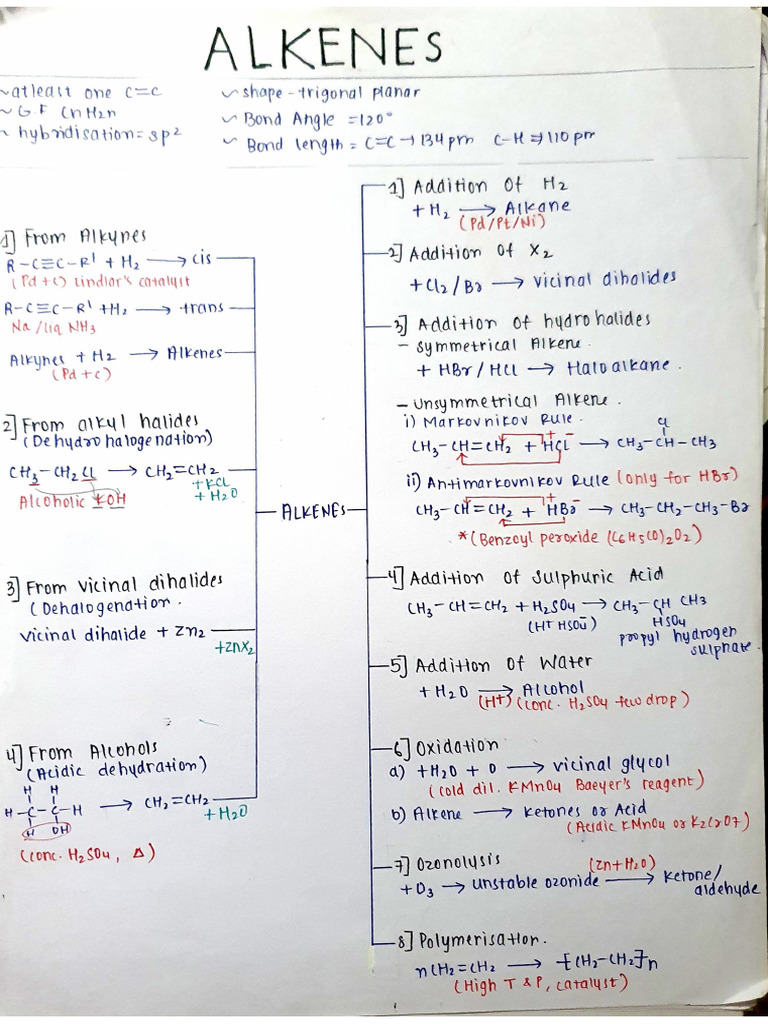 ALKENES
~atleast one C=C
~G.F CnH2n
~hybridisation=sp²
~shape-trigonal planar
~Bond Angle =120°
~Bond length = C=C→134pm C-H⇒110 pm
1] From Alkynes
R-C≡C-R' + H2 → cis
(Pd+C) Lindlar's catalyst
R-C≡C-R' +H2 → trans
Na/liq NH3
Alkynes + H2 → Alkenes
(Pd+C)
2] From alkyl halides
(Dehydrohalogenation)
CH3-CH2Cl → CH2=CH2
+KCl
+H2O
Alcoholic KOH
3] From vicinal dihalides
(Dehalogenation.
vicinal dihalide + Zn2
+ZnX2
4] From Alcohols
(Acidic dehydration)
H H
H-C-C-H → CH2=CH2
+H2O
H OH
(conc. H2SO4, Δ)
ALKENES
1] Addition Of H2
+H2 → Alkane
(Pd/Pt/Ni)
2] Addition of X2
+Cl2/Br → vicinal dihalides
3] Addition of hydrohalides
- Symmetrical Alkene.
+ HBr/HCl → Haloalkane.
- Unsymmetrical Alkene.
i) Markovnikov Rule.
Cl
CH3-CH=CH2 + H+Cl- → CH3-CH-CH3
ii) Antimarkovnikov Rule (only for HBr)
CH3-CH=CH2 + H+Br- → CH3-CH2-CH3-Br
*(Benzoyl peroxide (C6H5CO)2O2)
4] Addition of Sulphuric Acid
CH3-CH=CH2 + H2SO4 → CH3-CH CH3
(H+ HSO4-)
HSO4
propyl hydrogen
sulphate.
5] Addition Of Water
+H2O → Alcohol
(H+) (conc. H2SO4 few drop)
6] Oxidation
a) +H2O + O → vicinal glycol
(cold dil. KMnO4 Baeyer's reagent)
b) Alkene → ketones or Acid
(Acidic KMnO4 or K2Cr2O7)
7] Ozonolysis
(Zn+H2O)
+O3 → unstable ozonide → ketone/
aldehyde
8] Polymerisation.
nCH2=CH2 → -[CH2-CH2]n
(High T & P, catalyst)